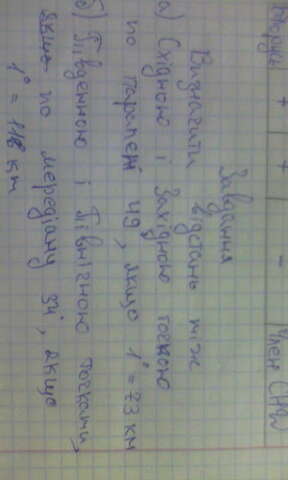 Норусі + + - Член (НИ)
Завдання
Визначити відстань між
а) Східною і Західною точкою
по паралелі 49, якщо 1° = 73 км
б) Південною і Північною точками,
по мередіану 34, якщо
1° = 111 км